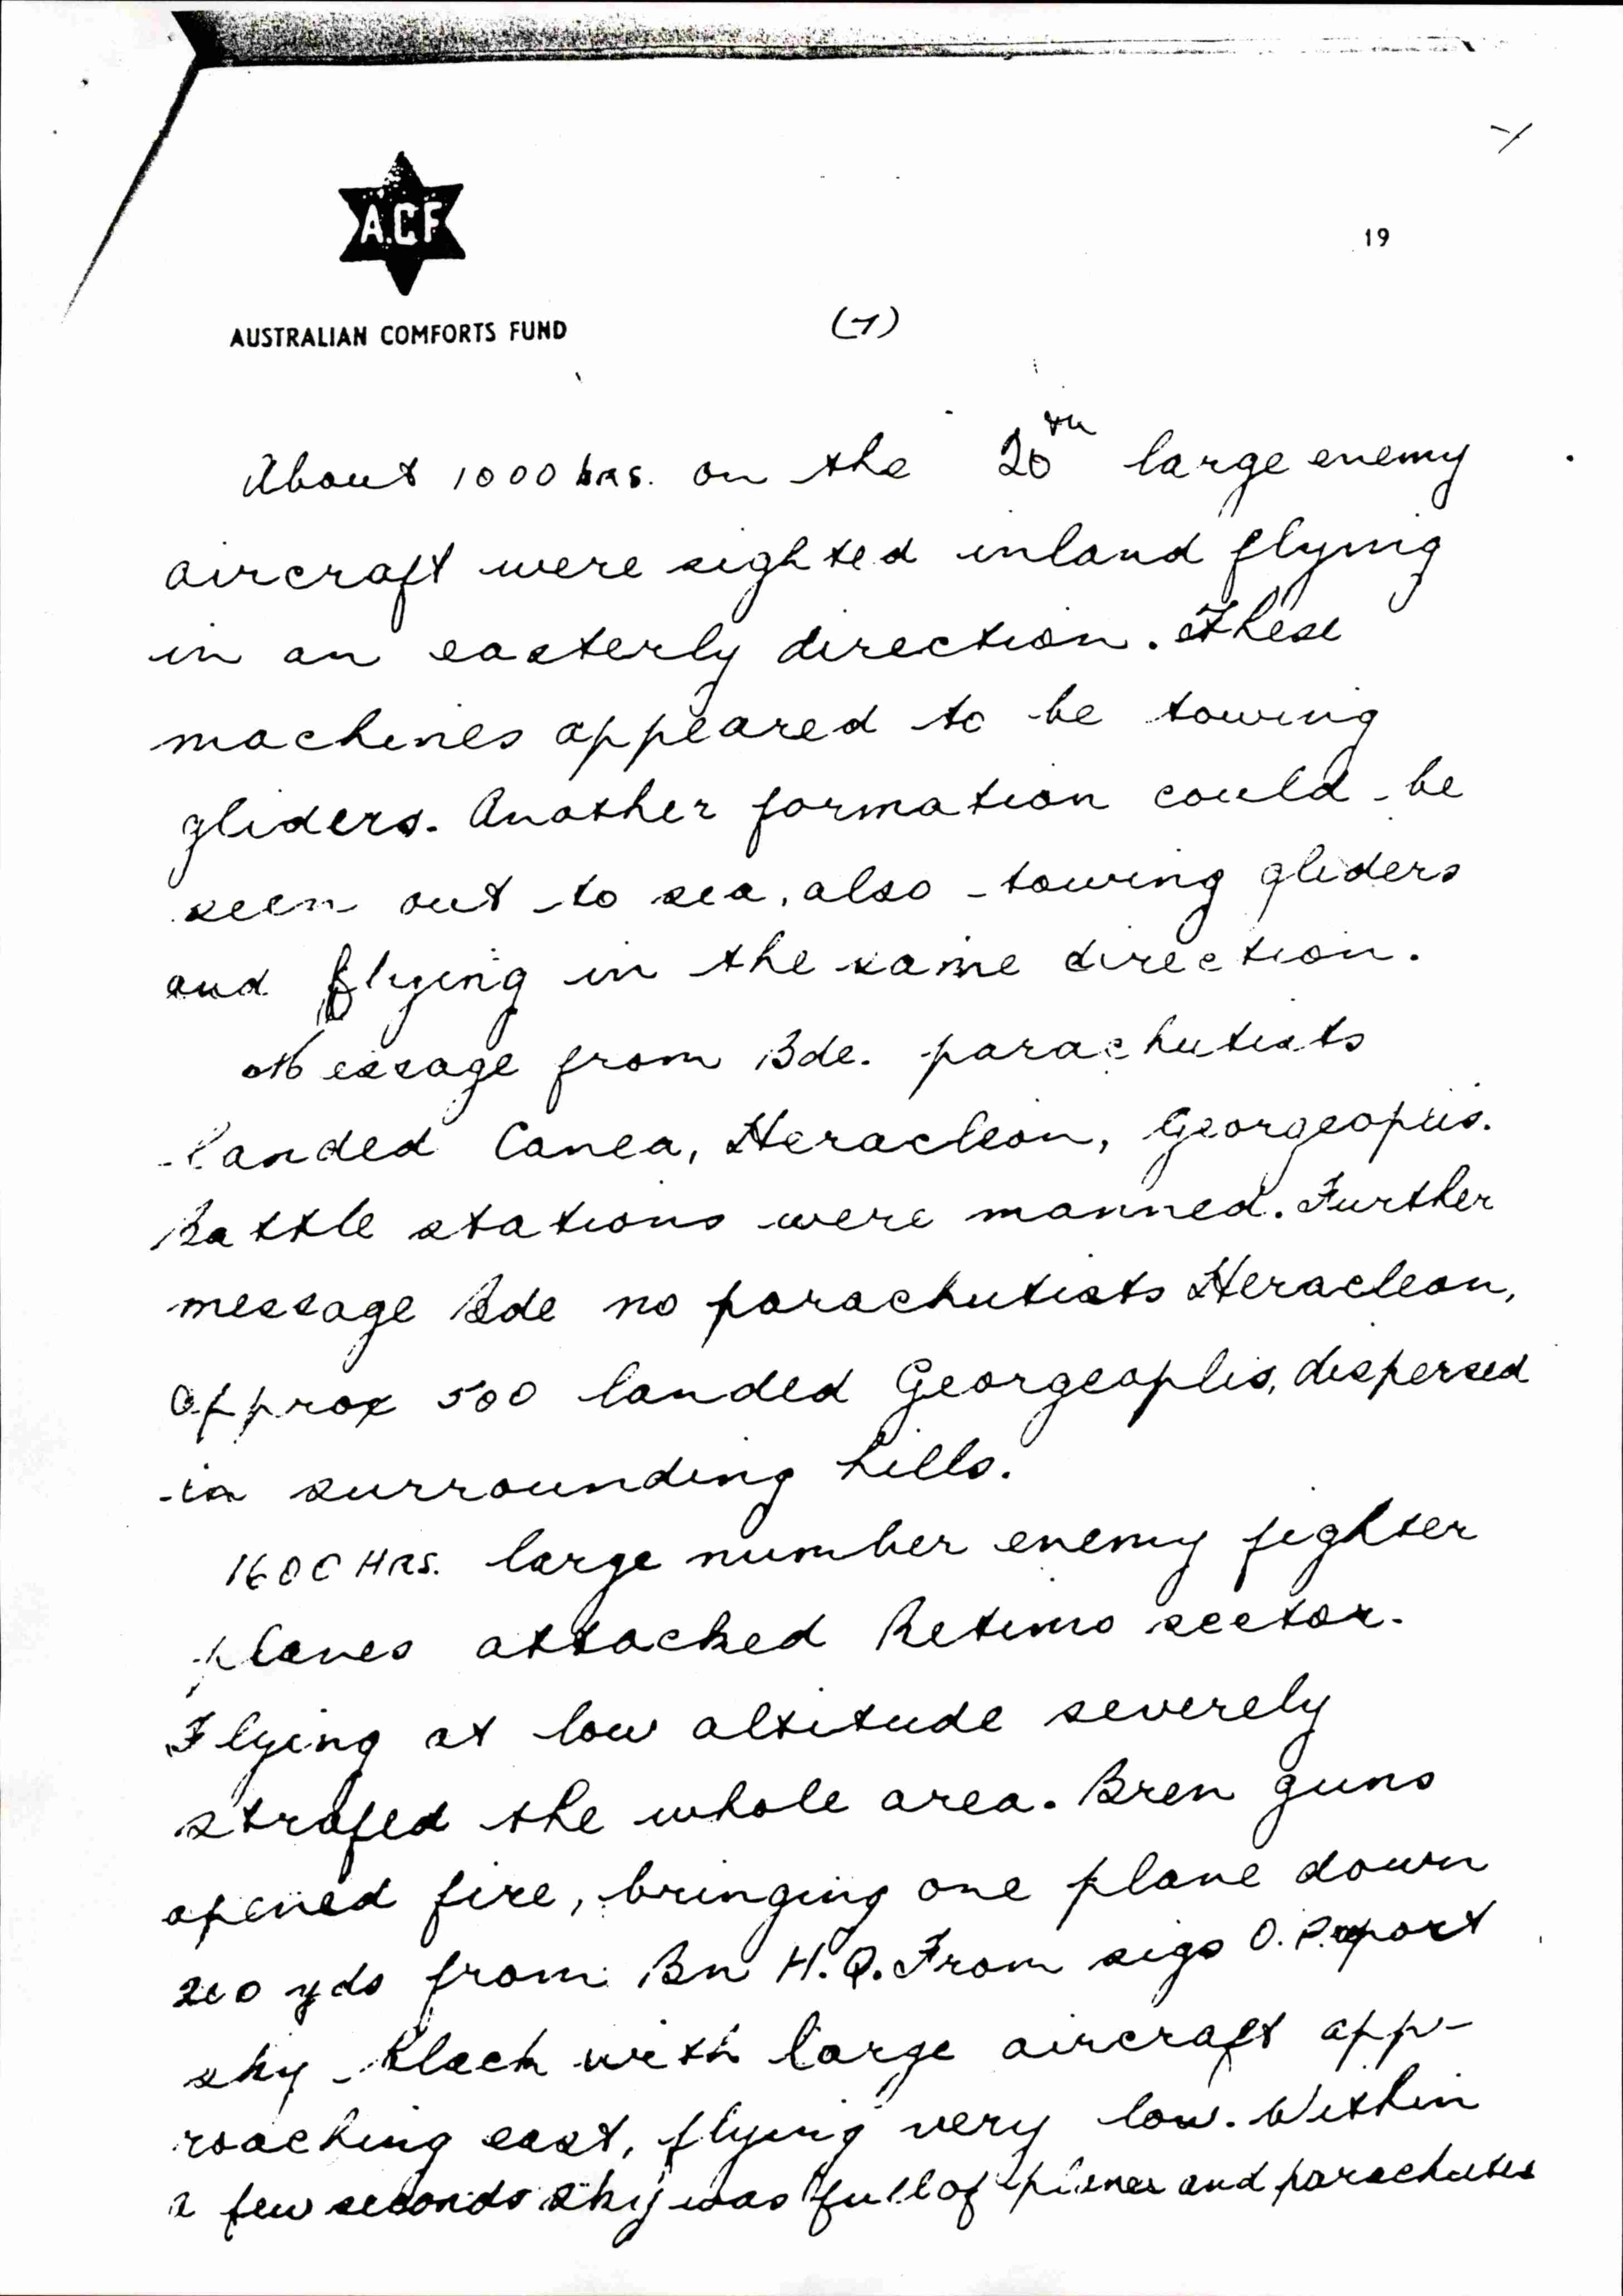 A.C.F
19
AUSTRALIAN COMFORTS FUND
(7)
About 1000 hrs. on the 20th large enemy
aircraft were sighted inland flying
in an easterly direction. These
machines appeared to be towing
gliders. Another formation could be
seen out to sea, also towing gliders
and flying in the same direction.
Message from Bde. parachutists
landed Canea, Heracleon,
Battle stations were manned. Further
message Bde no parachutists Heracleon,
Approx 500 landed Georgeoplis, dispersed
in surrounding hills.
1600 HRS. large number enemy fighter
planes attacked Retimo sector.
Flying at low altitude severely
strafed the whole area. Bren guns
opened fire, bringing one plane down
200 yds from Bn H.Q. From sigs O.P. report
sky black with large aircraft app-
roaching east, flying very low. Within
a few seconds sky was full of planes and parachutes